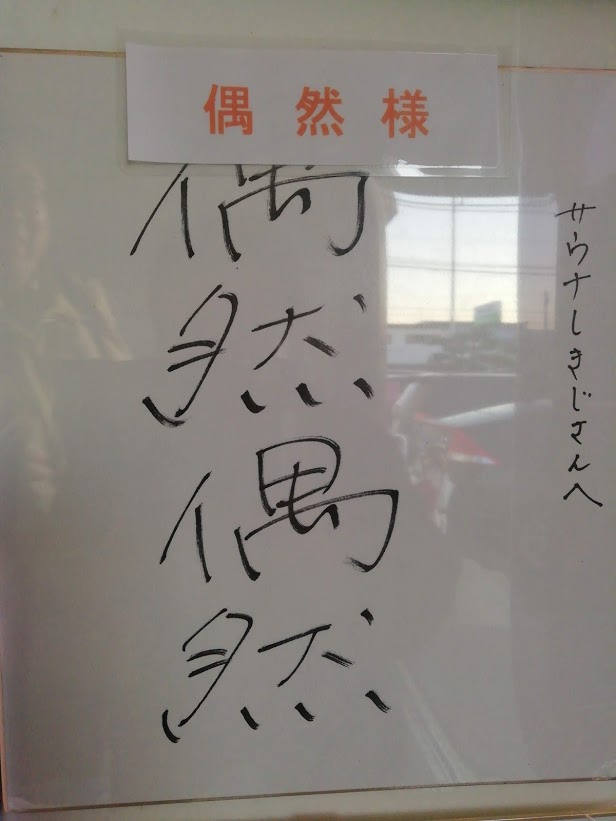 偶然様
サウナしきじさんへ
偶然偶然